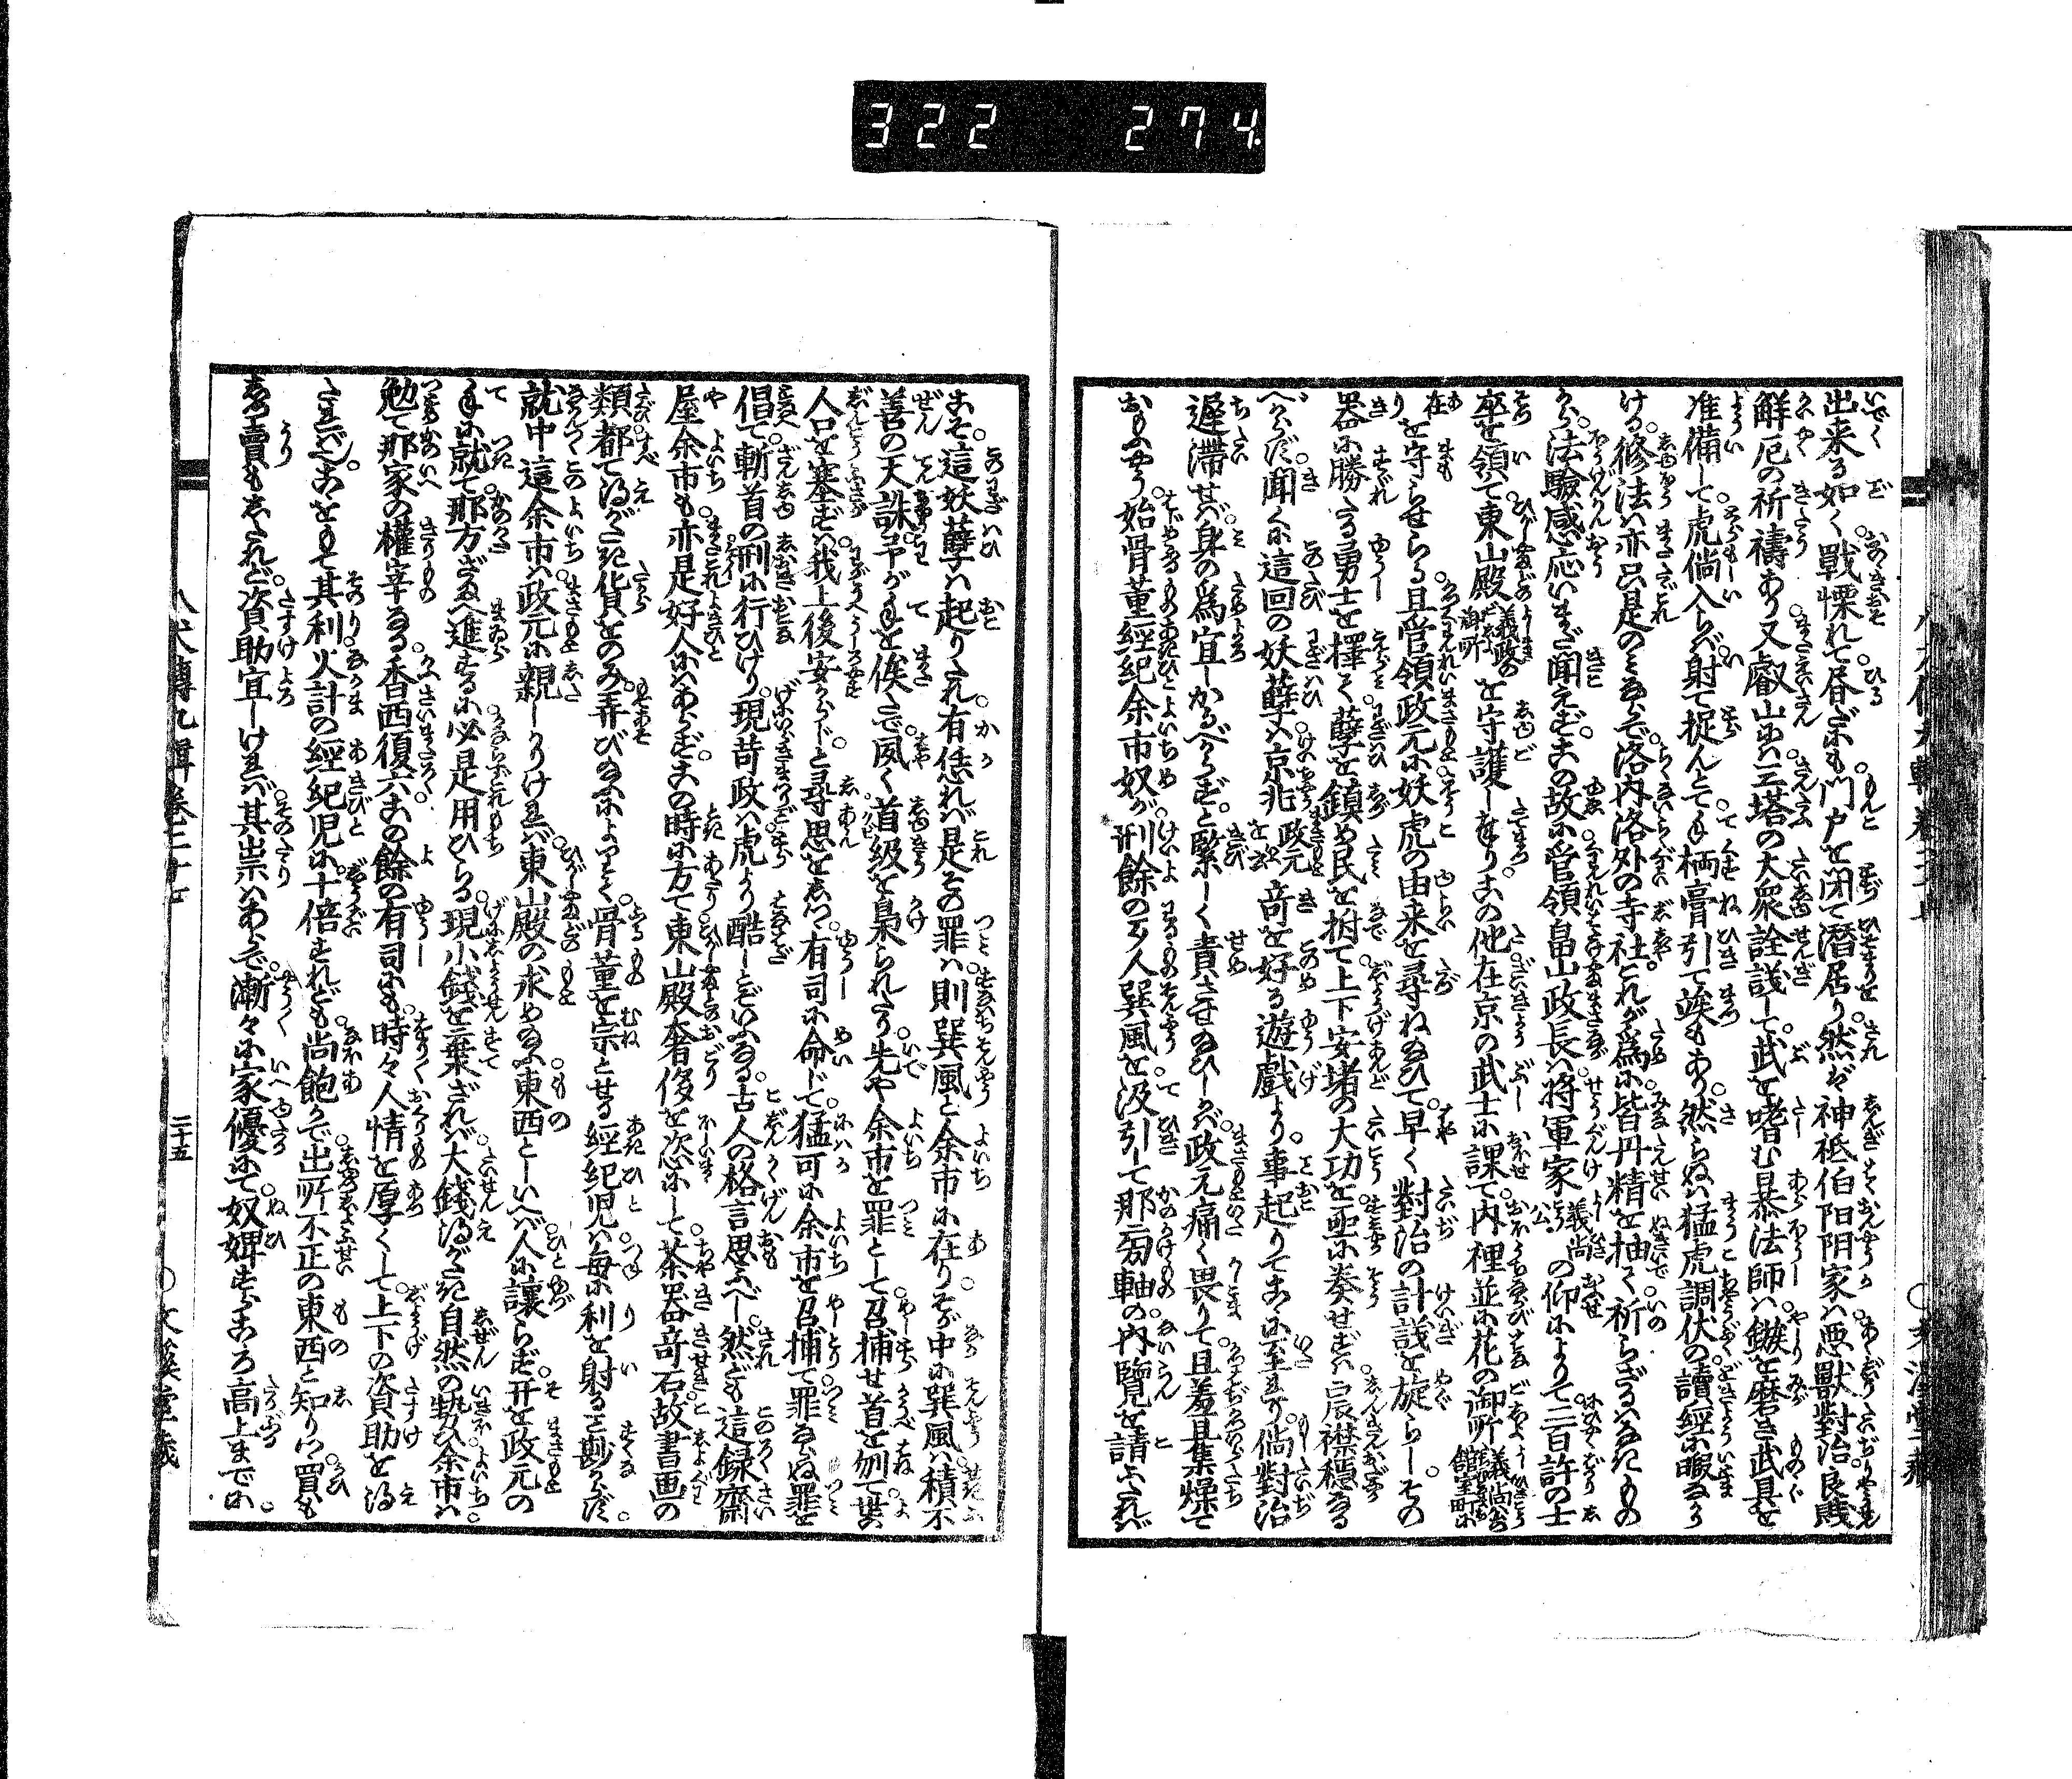 322 274
出来る如く戰慄れて昼だにも門戸を閉て潜居り然ば神祇伯陰陽家は悪獣對治良賤
鮮厄の祈禱あり又叡山には三塔の大衆詮議して武を嗜む暴法師は鏃を磨き武具を
准備して虎倘入らば射て捉んとて手柄膏引て竢もあり然らぬは猛虎調伏の讀經に暇なかり
ける修法は亦只是のみならで洛内洛外の寺社これが為に皆丹精を抽て祈らざるはなきものから
法驗感応いまだ聞えずこの故に管領畠山政長は将軍家義尚公の仰によりて二百許の士
卒を領て東山殿義政の御所を守護しまつりこの他在京の武士に課て内裡並に花の御所義尚公の館室町に
在りを守らせらる且管領政元に妖虎の由来を尋ね給ひて早く對治の計議を旋らしその
器に勝たる勇士を擇て孽を鎮め民を拊て上下安堵の大功を亟に奏せずは宸襟穏なる
べからだ聞くに這回の妖孽は京兆政元をいふ奇を好る遊戯より事起りてこゝに至れり倘對治
遅滞せば身の為宜しかるべからずと緊しく責させ給ひしかば政元痛く畏りて且羞且集燥て
おもふやう始骨董經紀余市奴が刑餘の罪人巽風を汲引して那画軸の内覧を請ふたれば
八犬傳九輯巻二十七
こそ這妖孽は起りたれ有恁れば是その罪は則巽風と余市に在りそが中に巽風は積不
善の天誅早が手を俟たで夙く首級を梟られたり先や余市を罪として召捕せ首を刎て世
人口を塞ずは我上後安からじと尋思をしつゝ有司に命じて猛可に余市を召捕て罪ならぬ罪を
倡て斬首の刑に行ひけり現苛政は虎より酷しとぞいふなる古人の格言思ふべし然ども這録齋
屋余市も亦是好人にはあらずこの時に方て東山殿奢侈を恣にして茶器奇石故書画の
類都て得がたき貨をのみ弄び給ふによりて骨董を宗とせる經紀児は毎に利を射ること尠からず
就中這余市は政元に親しかりければ東山殿の求め給ふ東西としいへば人に讓らず开を政元の
手に就て那方ざまへ進するに必是用ひらる現小錢を棄ざれば大錢得がたき自然の勢ひ余市は
勉て那家の權宰なる香西復六この餘の有司にも時々人情を厚くして上下の資助を得
たればこゝをもて其利火計の經紀児に十倍すれども尚飽かで出所不正の東西と知りつゝ買も
しつ賣もしたれど資助宜しければ其祟はあらで漸々に家優にて奴婢すらこゝろ高上までに
八犬傳九輯巻二十七
二十五
文溪堂藏